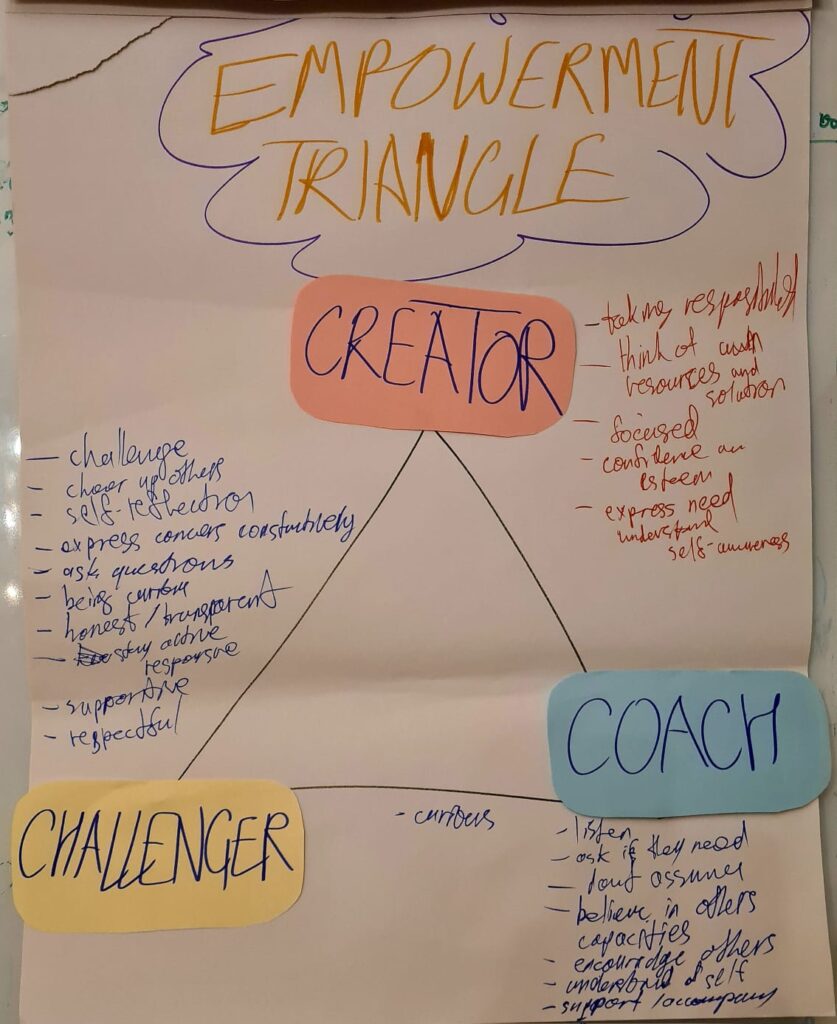 EMPOWERMENT
TRIANGLE
CREATOR
- taking
- think of
resources and
solution
- focused
- confidence an
esteem
- express need
understand
self-awareness
- challenge
- cheer up others
- self-reflection
- express concers constructively
- ask questions
- being curious
- honest/transparent
- stay active
responsive
- supportive
- respectful
COACH
CHALLENGER
- curious
- listen
- ask if they need
- dont assume
- believe in others
capacities
- encouradge others
- understand self
- support/accompany